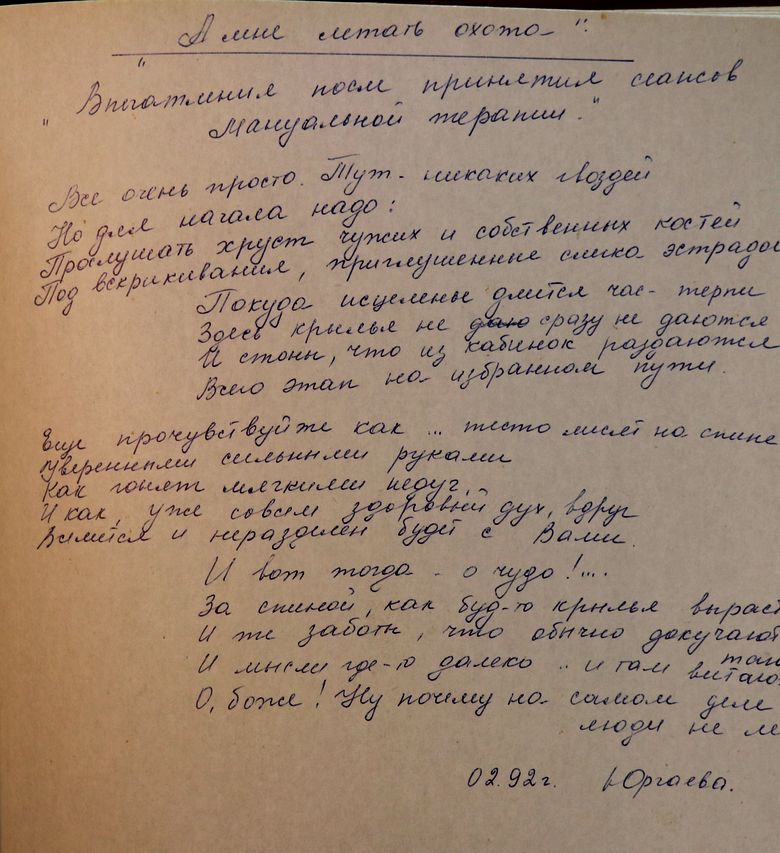 "А мне летать охота-".
"Впечатления после принятия сеансов
Мануальной терапии."
Все очень просто. Тут- никаких гвоздей
Но для начала надо:
Прослушать хруст чужих и собственных костей
Под вскрикивания, приглушенные слика эстрадой
Покуда исцеленье длится час- терпи
Здесь крылья не даю сразу не даются
И стоны, что из кабинок раздаются
Всего этап на избранном пути.
Еще прочувствуйте как ... тесто месят на спине
уверенными сильными руками
Как гонят мягкими недуг,
И как, уже совсем здоровый дух, вдруг
Вольётся и неразделен будет с Вами.
И вот тогда - о чудо!....
За спиной, как буд-то крылья выраст
И же заботы, что обычно докучают
И мысли где-то далеко .. и там
витаю
О, боже! Ну почему на самом деле
люди не ле
02.92г. Юргаева.